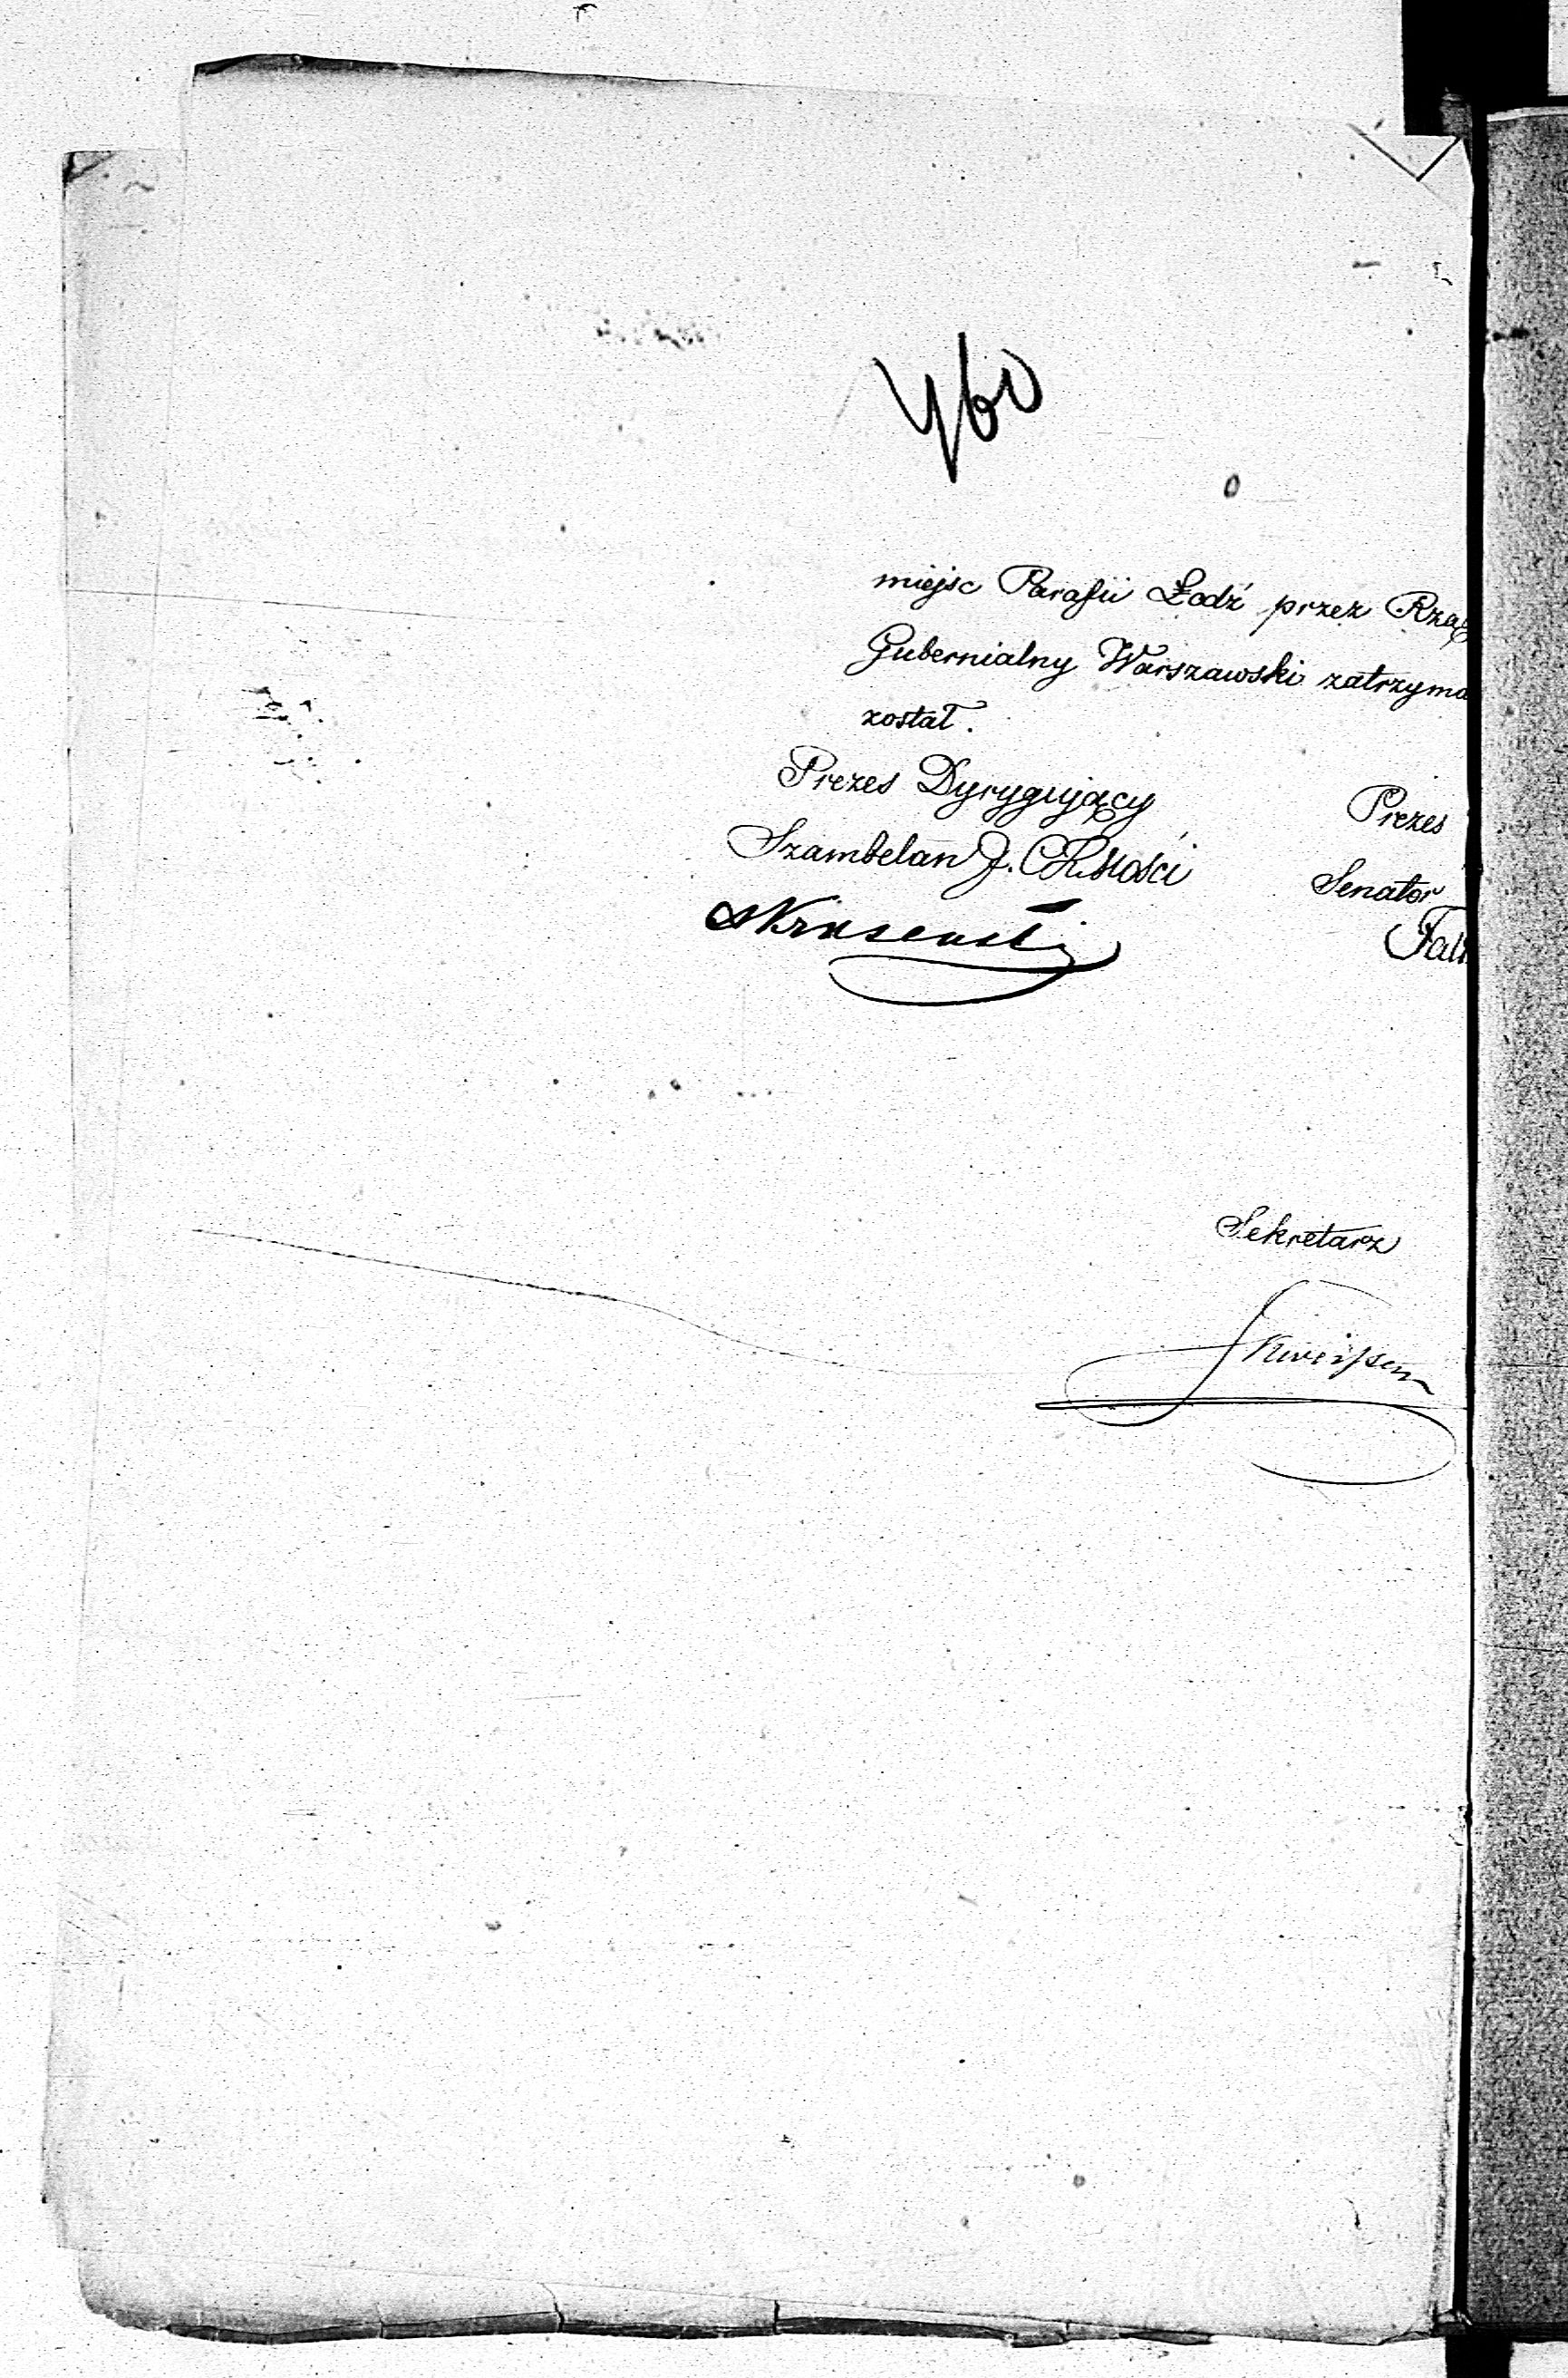 460
miejsc Parafii Łodź przez Rzą
Gubernialny Warszawski zatrzyma
został.
Prezes Dyrygujący
Szambelan J.
Prezes
Senator
Sekretarz